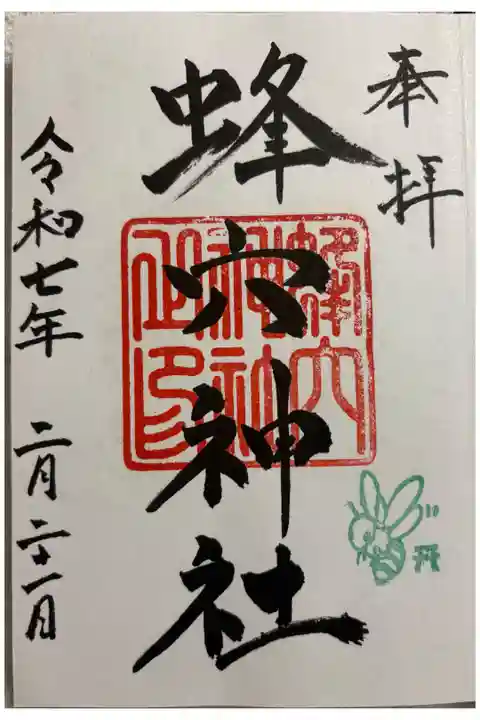 奉拝
蜂穴神社
令和七年 二月二十一日
蜂穴
神社
之印